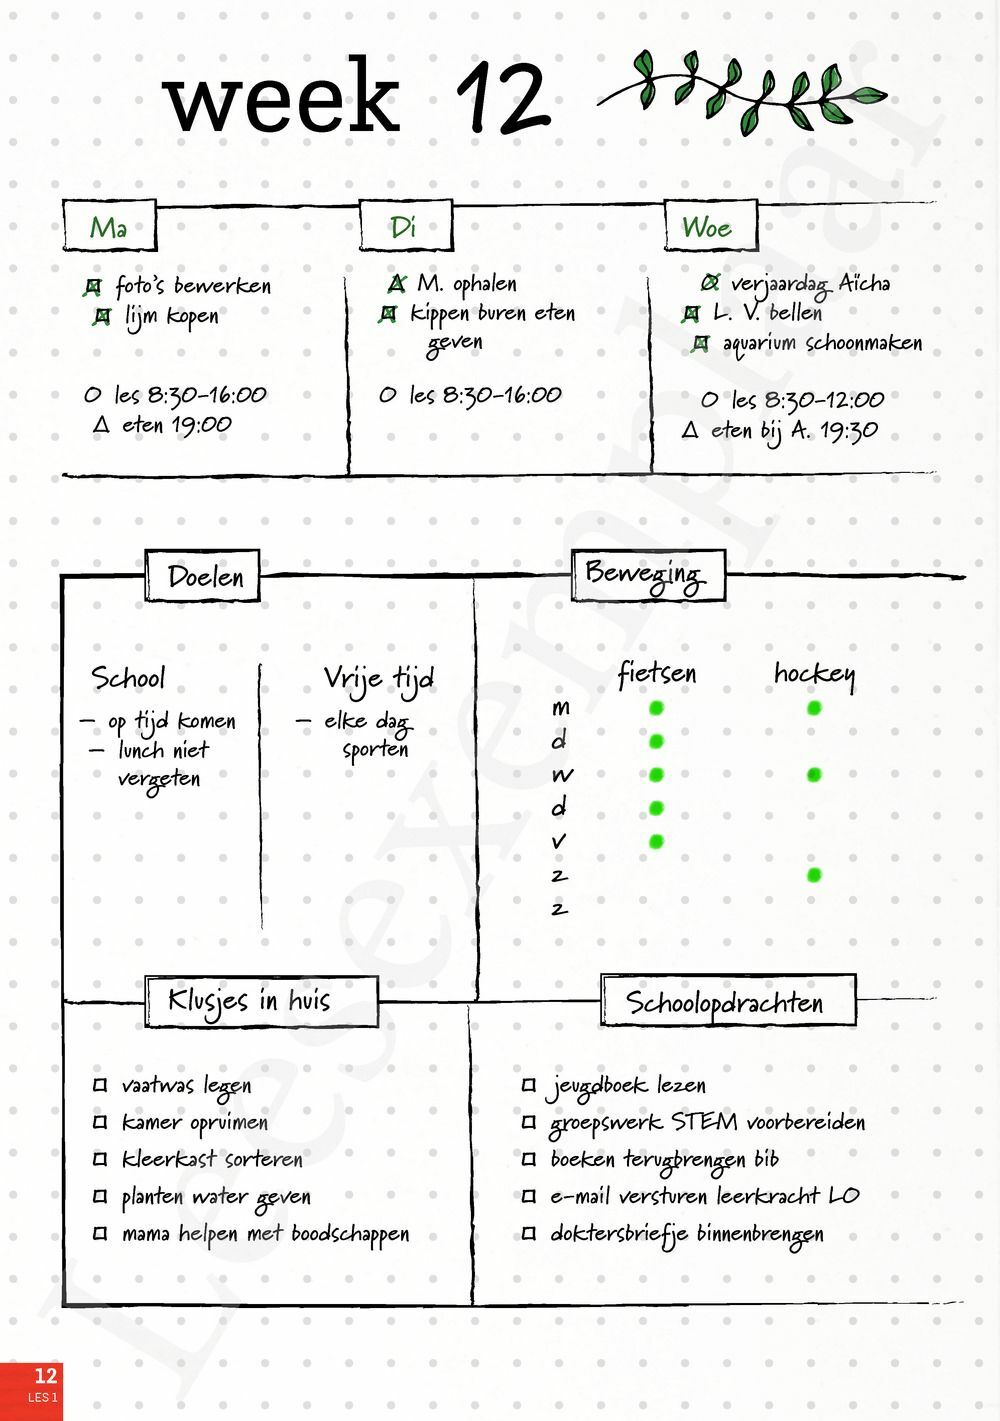 week 12
Ma
foto's bewerken
lijm kopen
les 8:30–16:00
eten 19:00
Di
M. ophalen
kippen buren eten
geven
les 8:30–16:00
Woe
verjaardag Aïcha
L. V. bellen
aquarium schoonmaken
les 8:30–12:00
eten bij A. 19:30
Doelen
School
– op tijd komen
– lunch niet
vergeten
Vrije tijd
– elke dag
sporten
Beweging
fietsen hockey
m
d
w
d
v
z
z
Klusjes in huis
vaatwas legen
kamer opruimen
kleerkast sorteren
planten water geven
mama helpen met boodschappen
Schoolopdrachten
jeugdboek lezen
groepswerk STEM voorbereiden
boeken terugbrengen bib
e-mail versturen leerkracht LO
doktersbriefje binnenbrengen
Leesexemplaar
12
LES 1